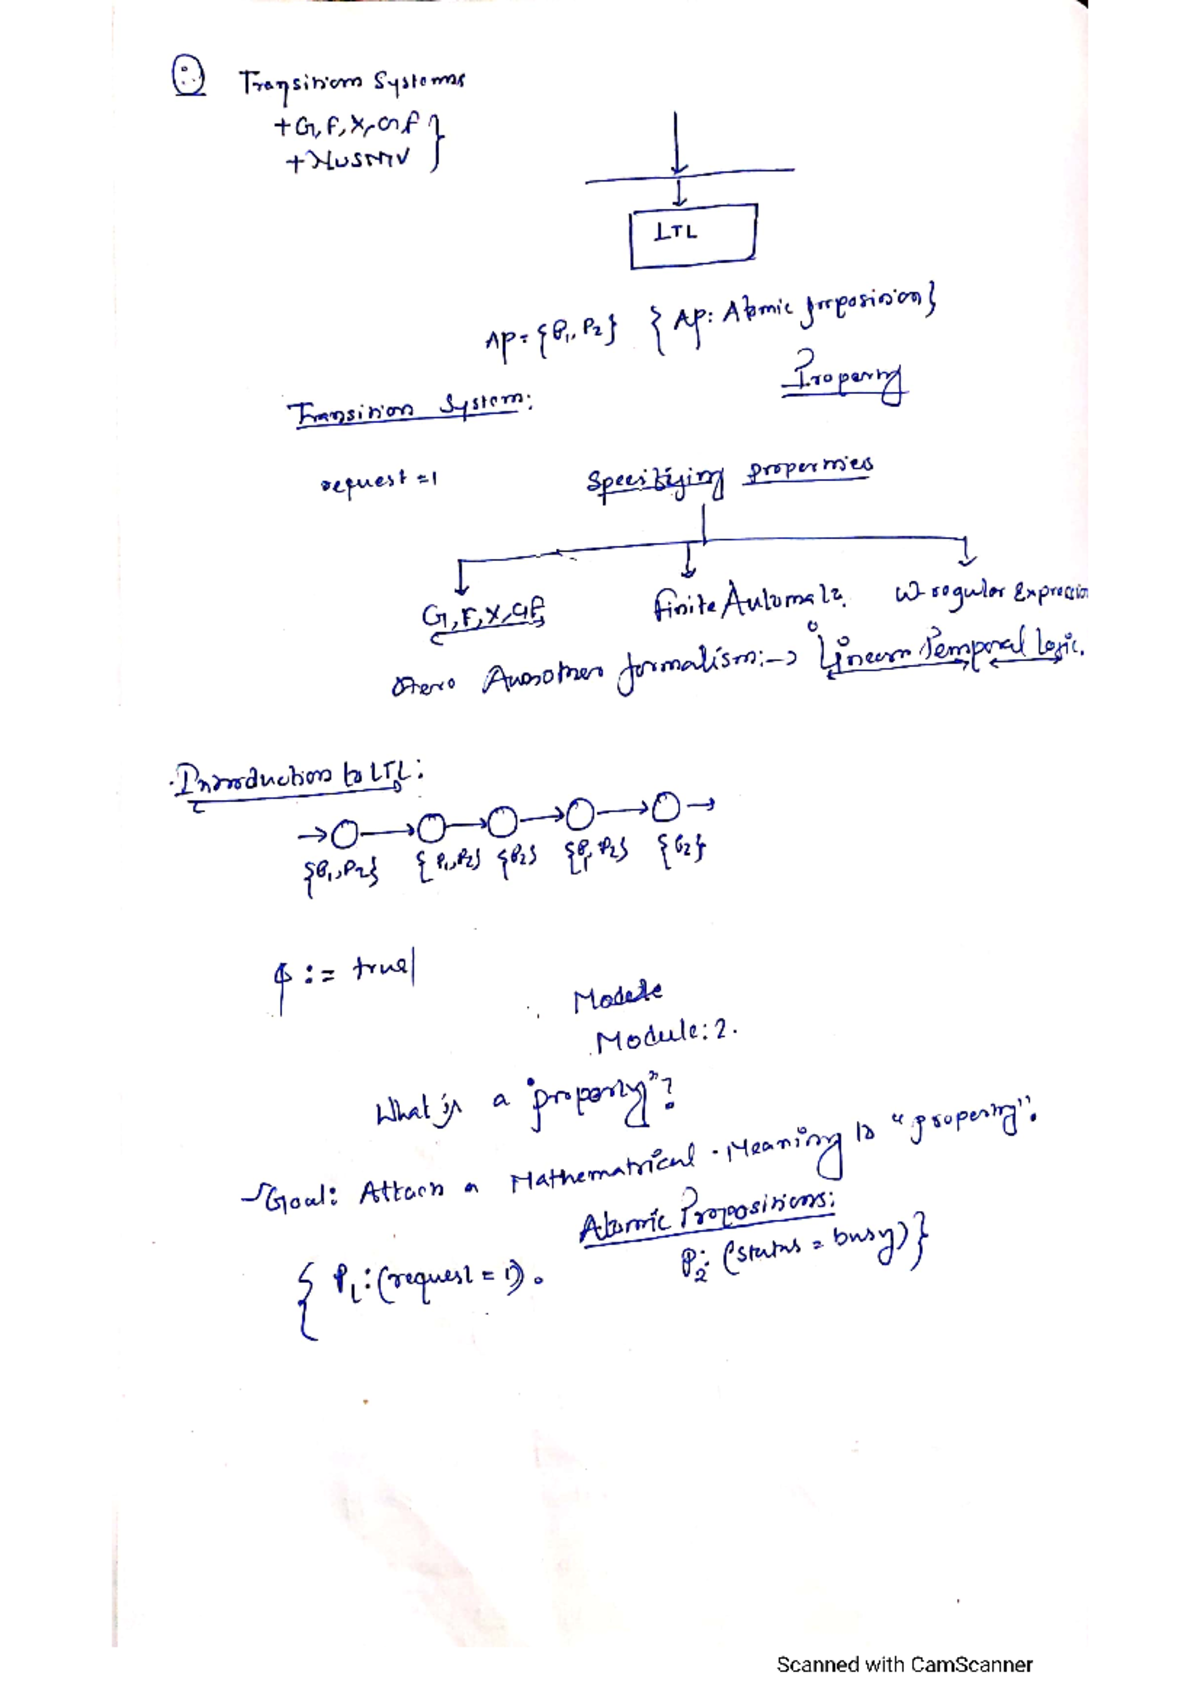 Transition Systems
+G, F, X, GF }
+NUSMV
LTL
AP = {P1, P2} { AP: Atomic proposition}
Property
Transition System:
request = 1
Specifying properties
G, F, X, GF
Finite Automata
W-regular Expression
Here Another formalism:→ Linear Temporal Logic.
Introduction to LTL:
{P1, P2} { P1, P2} {P2} {P1, P2} {P2}
φ := true|
Module
Module: 2.
What is a "property"?
Goal: Attach a Mathematrical Meaning to "property".
Atomic Propositions:
{ P1: (request = 1). P2: (status = busy)}
Scanned with CamScanner